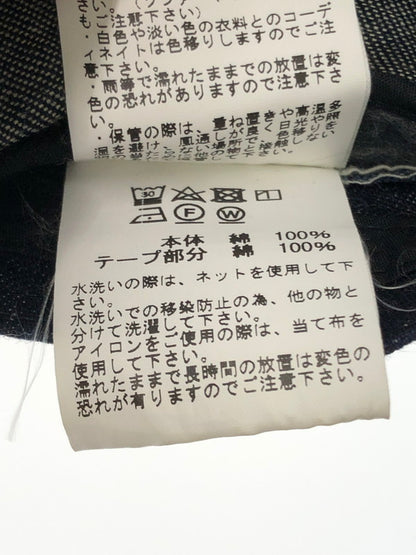 注意下さい。(ソファー
ご白色や淡い色の衣料とのコーデ
ィネイトは色移りしますのでご注
意下さい。
・雨等で濡れたままでの放置は変
色の恐れがありますのでご注意下
さい。
・保管の際は、重ね置きや高温多
30
P W
本体 綿 100%
テープ部分 綿 100%
水洗いの際は、ネットを使用して下
さい。
水洗いでの移染防止の為、他の物と
分けて洗濯して下さい。
アイロンをご使用の際は、当て布を
使用して下さい。
濡れたままで長時間の放置は変色の
恐れが有りますのでご注意下さい。